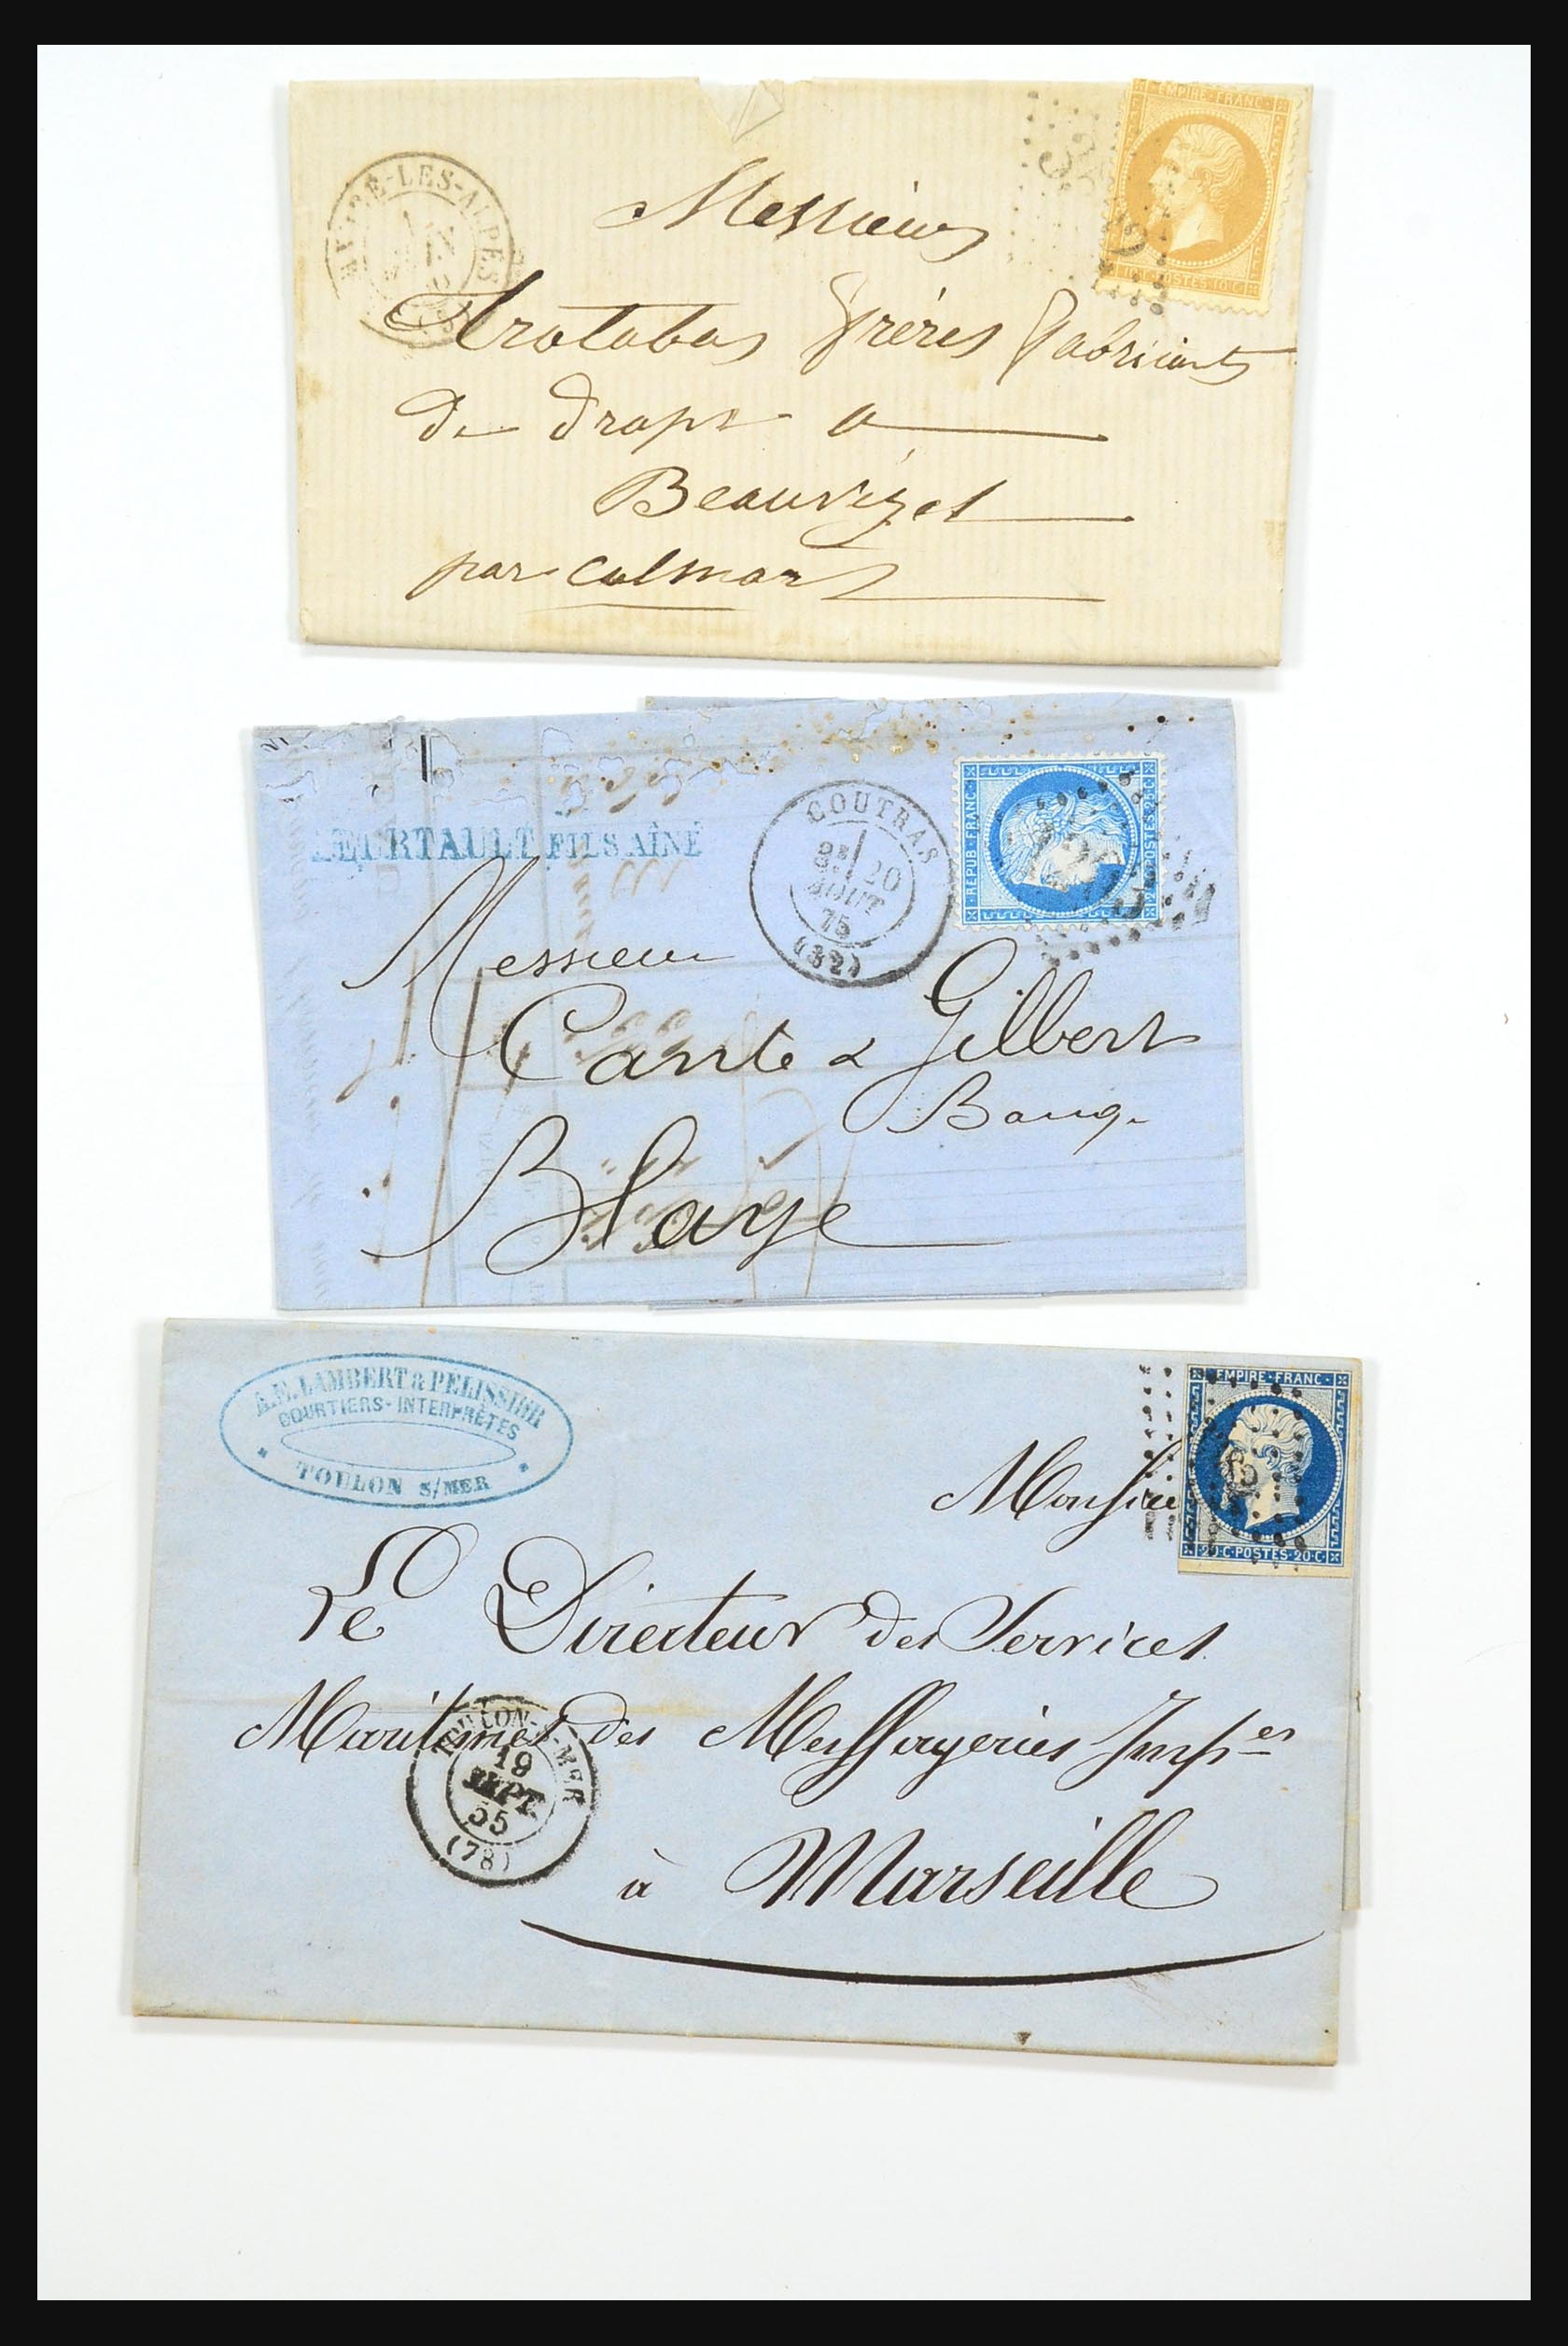 EMPIRE · FRANC ·
10 C · POSTES · 10 C ·
Messieurs
frères fabricants
de draps a
Beauvezet
par Colmars
LEURTAULT FILS AÎNÉ
COUTRAS
20
AOUT
75
(32)
· REPUB · FRANC ·
25 C · POSTES · 25 C ·
Messieurs
Cante & Gilbert
Banq.
Blaye
A. E. LAMBERT & PÉLISSIER
COURTIERS-INTERPRÈTES
* TOULON S/MER *
EMPIRE · FRANC ·
20 · C · POSTES · 20 · C ·
Monsieu
Le Directeur des Services
Maritimes des Messageries Impes
TOULON-S-MER
19
SEPT.
55
(78)
à Marseille